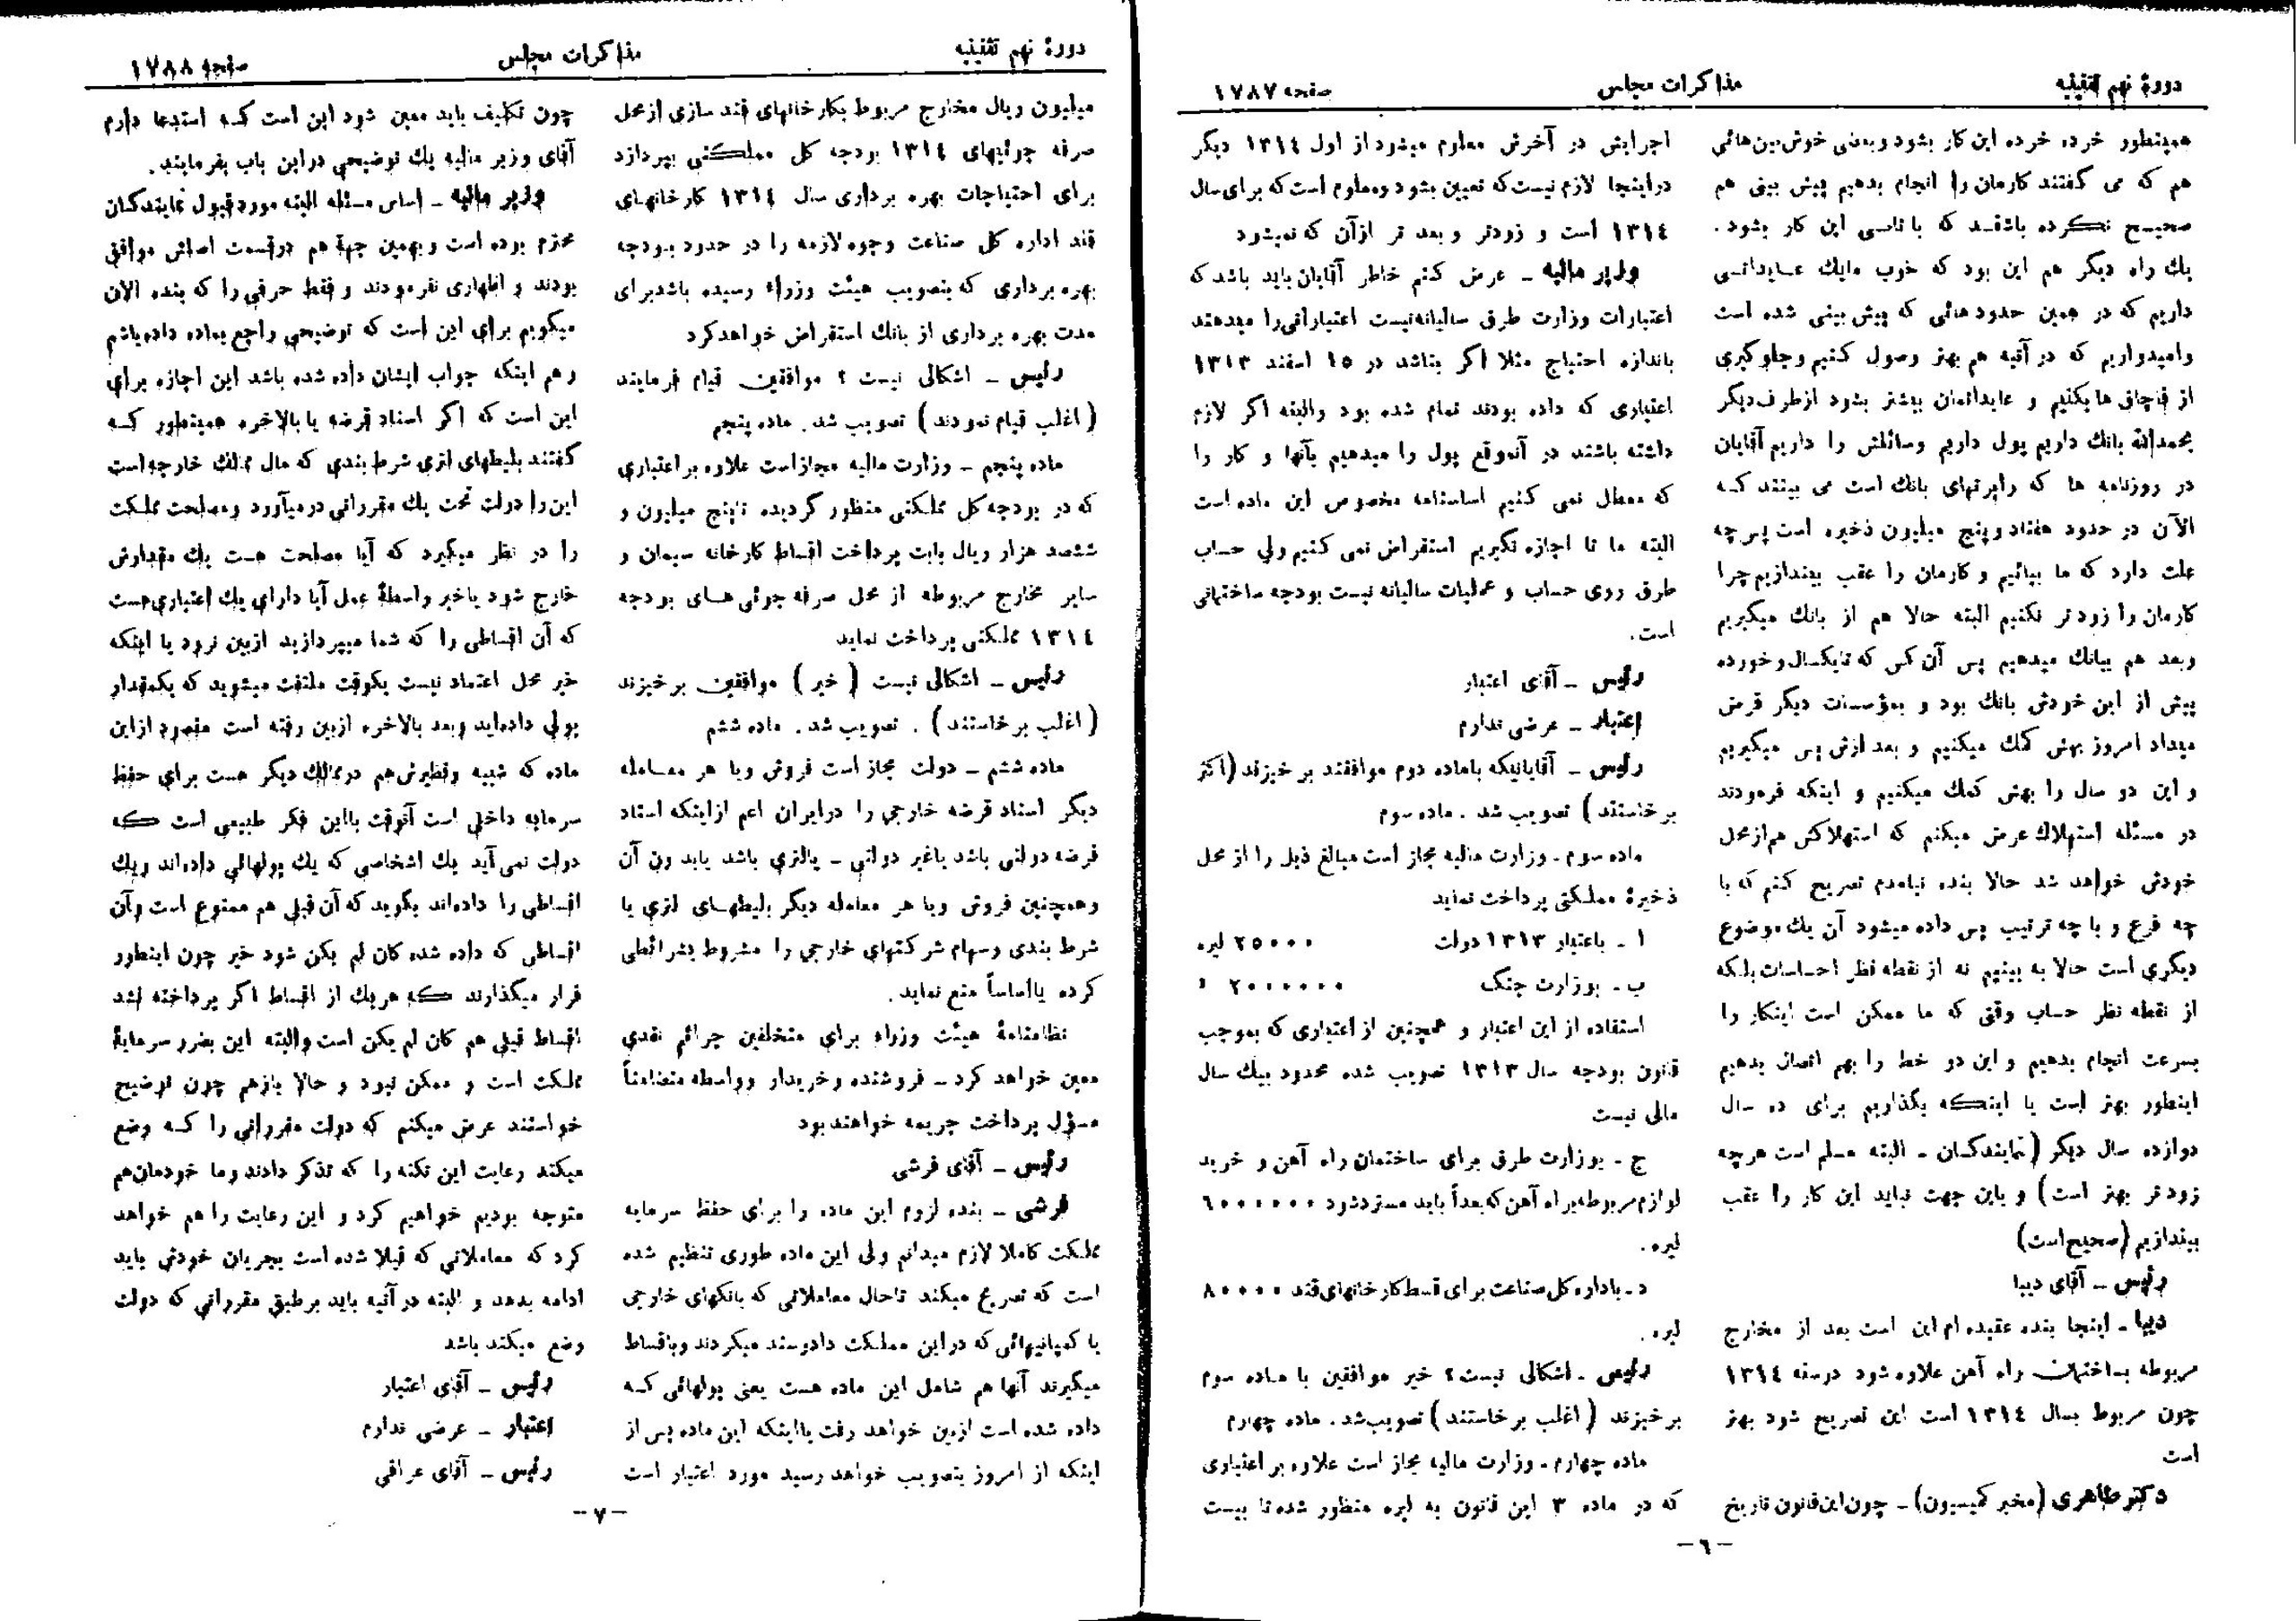 دورهٔ نهم تقنینیه
مذاکرات مجلس
صفحه ۱۷۸۷
همینطور خرده خرده این کار بشود و بعضی خوش بین هائی
هم که می گفتند کارمان را انجام بدهیم پیش بینی هم
صحیح نکرده باشند که با تأسی این کار بشود .
یك راه دیگر هم این بود که خوب مایك عایداتی
داریم که در همین حدود هائی که پیش بینی شده است
وامیدواریم که در آتیه هم بهتر وصول کنیم وجلوگیری
از قاچاق ها بکنیم و عایداتمان بیشتر بشود ازطرف دیگر
بحمدالله بانك داریم پول داریم وسائلش را داریم آقایان
در روزنامه ها که راپرتهای بانك است می بینند که
الآن در حدود هفتاد وپنج میلیون ذخیره است پس چه
علت دارد که ما بیائیم و کارمان را عقب بیندازیم چرا
کارمان را زود تر نکنیم البته حالا هم از بانك میگیریم
وبعد هم ببانك میدهیم پس آن کس که تایکسال وخورده
پیش از این خودش بانك بود و بمؤسسات دیگر قرض
میداد امروز بهش کمك میکنیم و بعد ازش پس میگیریم
و این دو سال را بهش کمك میکنیم و اینکه فرمودند
در مسئله استهلاك عرض میکنم که استهلاکش هم از محل
خودش خواهد شد حالا بنده نیامدم تصریح کنم که با
چه فرع و با چه ترتیب پس داده میشود آن یك موضوع
دیگری است حالا به بینیم نه از نقطه نظر احساسات بلکه
از نقطه نظر حساب وقتی که ما ممکن است اینکار را
بسرعت انجام بدهیم و این دو خط را بهم اتصال بدهیم
اینطور بهتر است یا اینکه بگذاریم برای ده سال
دوازده سال دیگر (نمایندگان ـ البته مسلم است هرچه
زود تر بهتر است) و باین جهت نباید این کار را عقب
بیندازیم (صحیح است)
رئیس ـ آقای دیبا
دیبا ـ اینجا بنده عقیده ام این است بعد از مخارج
مربوطه بساختمان راه آهن علاوه شود درسنه ۱۳۱٤
چون مربوط بسال ۱۳۱٤ است این تصریح شود بهتر
است
دکتر طاهری (مخبر کمیسیون) ـ چون این قانون تاریخ
اجرایش در آخرش معلوم میشود از اول ۱۳۱٤ دیگر
دراینجا لازم نیست که تعیین بشود ومعلوم است که برای سال
۱۳۱٤ است و زودتر و بعد تر ازآن که نمیشود
وزیر مالیه ـ عرض کنم خاطر آقایان باید باشد که
اعتبارات وزارت طرق سالیانه نیست اعتباراتی را میدهند
باندازه احتیاج مثلا اگر بناشد در ۱۵ اسفند ۱۳۱۳
اعتباری که داده بودند تمام شده بود والبته اگر لازم
داشته باشند در آنموقع پول را میدهیم بآنها و کار را
که معطل نمی کنیم اساسنامه مخصوص این ماده است
البته ما تا اجازه نگیریم استقراض نمی کنیم ولی حساب
طرق روی حساب و عملیات سالیانه نیست بودجه ساختمانی
است .
رئیس ـ آقای اعتبار
اعتبار ـ عرضی ندارم
رئیس ـ آقایانیکه باماده دوم موافقند برخیزند (اکثر
برخاستند) تصویب شد . ماده سوم
ماده سوم ـ وزارت مالیه مجاز است مبالغ ذیل را از محل
ذخیرهٔ مملکتی پرداخت نماید
ا ـ باعتبار ۱۳۱۳ دولت ۲۵۰۰۰۰ لیره
ب ـ بوزارت جنگ ۲۰۰۰۰۰۰ »
استفاده از این اعتبار و همچنین از اعتباری که بموجب
قانون بودجه سال ۱۳۱۳ تصویب شده محدود بیك سال
مالی نیست
ج ـ بوزارت طرق برای ساختمان راه آهن و خرید
لوازم مربوطه براه آهن که بعداً باید مسترد شود ٦۰۰۰۰۰۰
لیره .
د ـ باداره کل صناعت برای قسط کارخانهای قند ۸۰۰۰۰۰
لیره .
رئیس ـ اشکالی نیست ؟ خیر موافقین با ماده سوم
برخیزند (اغلب برخاستند) تصویب شد . ماده چهارم
ماده چهارم ـ وزارت مالیه مجاز است علاوه بر اعتباری
که در ماده ۳ این قانون به لیره منظور شده تا بیست
ـ ٦ ـ
دورهٔ نهم تقنینیه
مذاکرات مجلس
صفحه ۱۷۸۸
میلیون ریال مخارج مربوط بکارخانهای قند سازی ازمحل
صرفه جوئیهای ۱۳۱٤ بودجه کل مملکتی بپردازد
برای احتیاجات بهره برداری سال ۱۳۱٤ کارخانهای
قند اداره کل صناعت وجوه لازمه را در حدود بودجه
بهره برداری که بتصویب هیئت وزراء رسیده باشد برای
مدت بهره برداری از بانك استقراض خواهد کرد
رئیس ـ اشکالی نیست ؟ موافقین قیام فرمایند
(اغلب قیام نمودند) تصویب شد . ماده پنجم
ماده پنجم ـ وزارت مالیه مجاز است علاوه بر اعتباری
که در بودجه کل مملکتی منظور گردیده تاپنج میلیون و
ششصد هزار ریال بابت پرداخت اقساط کارخانه سیمان و
سایر مخارج مربوطه از محل صرفه جوئی های بودجه
۱۳۱٤ مملکتی پرداخت نماید
رئیس ـ اشکالی نیست (خیر) موافقین برخیزند
(اغلب برخاستند) . تصویب شد . ماده ششم
ماده ششم ـ دولت مجاز است فروش ویا هر معامله
دیگر اسناد قرضه خارجی را درایران اعم ازاینکه اسناد
قرضه دولتی باشد یاغیر دولتی ـ بالتزی باشد یابدون آن
وهمچنین فروش ویا هر معامله دیگر بلیطهای لتری یا
شرط بندی وسهام شرکتهای خارجی را مشروط بشرائطی
کرده یااساساً منع نماید .
نظامنامهٔ هیئت وزراء برای متخلفین جرائم نقدی
معین خواهد کرد ـ فروشنده وخریدار وواسطه متضامناً
مسؤل پرداخت جریمه خواهند بود
رئیس ـ آقای قرشی
قرشی ـ بنده لزوم این ماده را برای حفظ سرمایه
مملکت کاملا لازم میدانم ولی این ماده طوری تنظیم شده
است که تصریح میکند تاحال معاملاتی که بانکهای خارجی
یا کمپانیهائی که دراین مملکت دادوستد میکردند وباقساط
میگیرند آنها هم شامل این ماده هست یعنی پولهائی که
داده شده است ازبین خواهد رفت یااینکه این ماده پس از
اینکه از امروز بتصویب خواهد رسید مورد اعتبار است
چون تکلیف باید معین شود این است که استدعا دارم
آقای وزیر مالیه یك توضیحی دراین باب بفرمایند .
وزیر مالیه ـ اساس مسئله البته مورد قبول نمایندگان
محترم بوده است و بهمین جهة هم درقسمت اصلش موافق
بودند و اظهاری نفرمودند و فقط حرفی را که بنده الان
میگویم برای این است که توضیحی راجع بماده داده باشم
و هم اینکه جواب ایشان داده شده باشد این اجازه برای
این است که اگر اسناد قرضه یا بالاخره همینطور که
گفتند بلیطهای لتری شرط بندی که مال ممالك خارجه است
این را دولت تحت یك مقرراتی درمیآورد ومصلحت مملکت
را در نظر میگیرد که آیا مصلحت هست یك مقدارش
خارج شود یاخیر واسطهٔ عمل آیا دارای یك اعتباری هست
که آن اقساطی را که شما میپردازید ازبین نرود یا اینکه
خیر محل اعتماد نیست یکوقت ملتفت میشوید که یکمقدار
پولی داده اید وبعد بالاخره ازبین رفته است مقصود ازاین
ماده که شبیه ونظیرش هم درممالك دیگر هست برای حفظ
سرمایه داخلی است آنوقت بااین فکر طبیعی است که
دولت نمی آید یك اشخاصی که یك پولهائی داده اند ویك
اقساطی را داده اند بگوید که آن قبلی هم ممنوع است وآن
اقساطی که داده شده کان لم یکن شود خیر چون اینطور
قرار میگذارند که هریك از اقساط اگر پرداخته نشد
اقساط قبلی هم کان لم یکن است والبته این بضرر سرمایهٔ
مملکت است و ممکن نبود و حالا بازهم چون توضیح
خواستند عرض میکنم که دولت مقرراتی را که وضع
میکند رعایت این نکته را که تذکر دادند وما خودمان هم
متوجه بودیم خواهیم کرد و این رعایت را هم خواهد
کرد که معاملاتی که قبلا شده است بجریان خودش باید
ادامه بدهد و البته در آتیه باید برطبق مقرراتی که دولت
وضع میکند باشد
رئیس ـ آقای اعتبار
اعتبار ـ عرضی ندارم
رئیس ـ آقای عراقی
ـ ۷ ـ